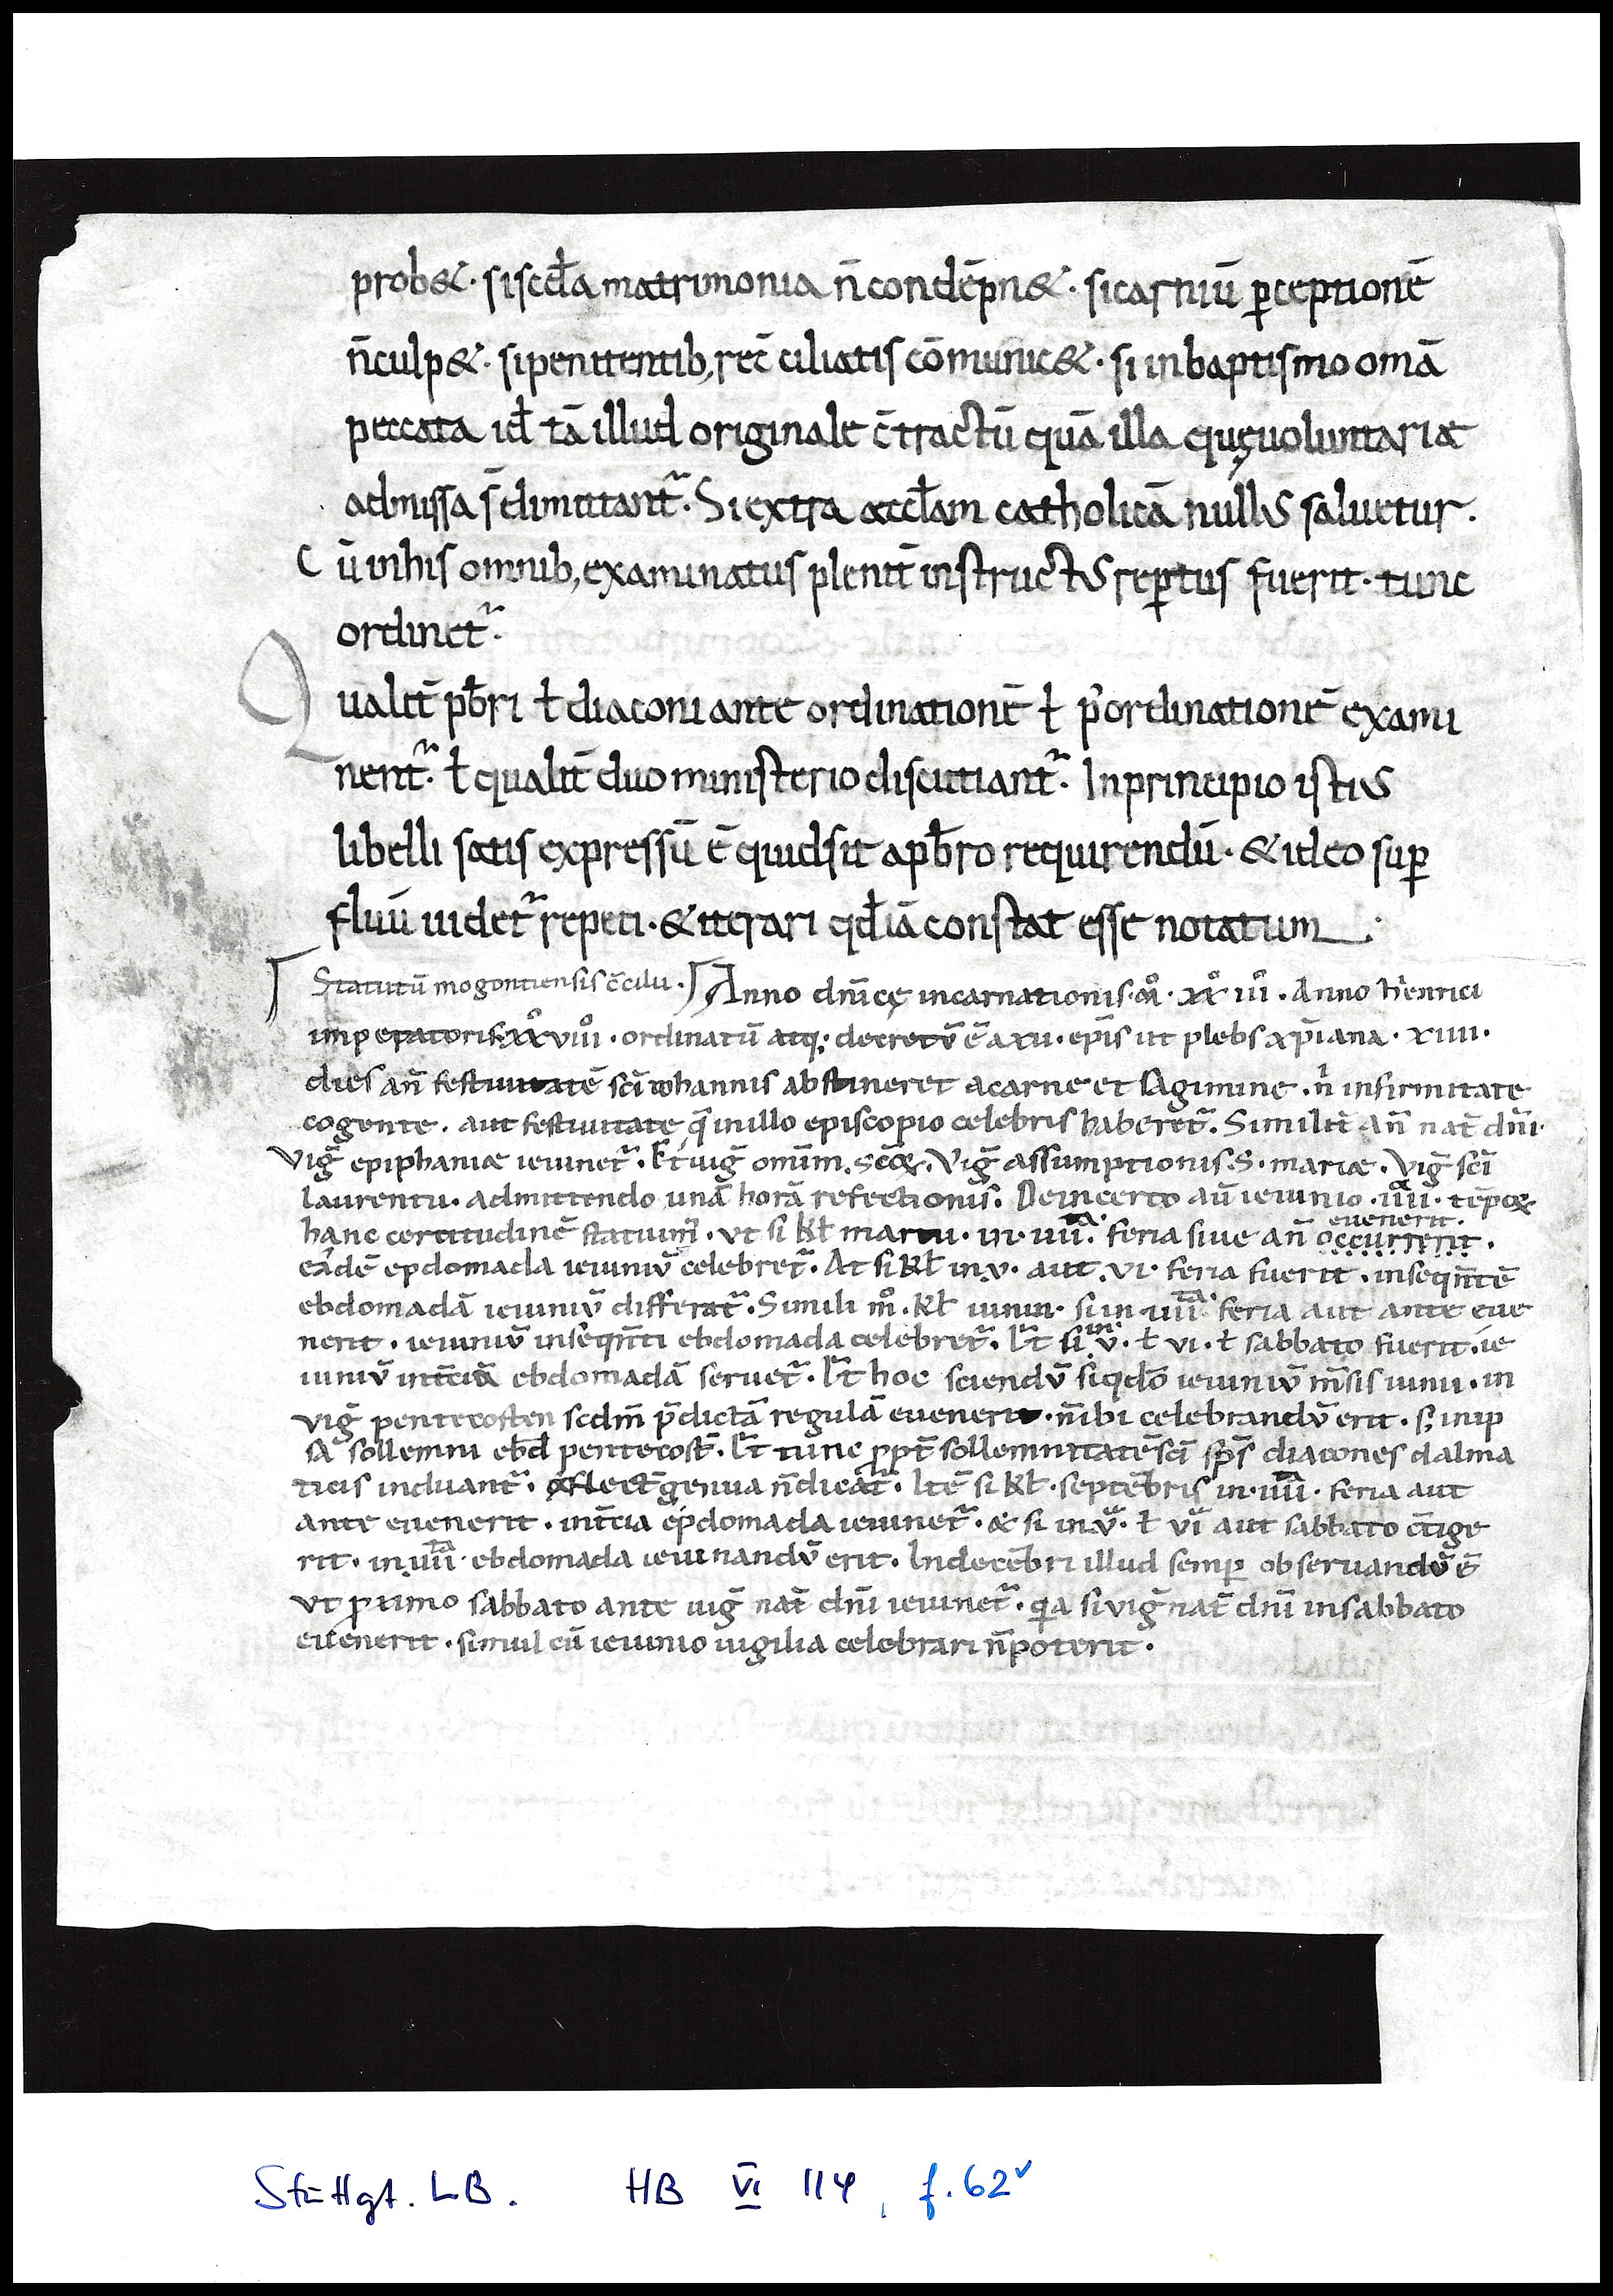 prob&. si scd̄a matrimonia n̄ condēpn&. si carniū ꝑceptionē
n̄ culp&. si penitentib; rec̄ciliatis cōmunic&. si in baptismo om̄a
peccata id̄ tā illud originale c̄tractū quā illa quę uoluntariæ
admissa s̄ dimittant᷑. Si extra æccl̄am catholicā nullus saluetur.
Cū in his omnib; examinatus plenit̄ instructus reꝑtus fuerit. tunc
ordinet᷑.
Qualit̄ pb̄ri ł diaconi ante ordinationē ł pꝰ ordinationē exami
nent᷑. ł qualit̄ duo ministerio discutiant᷑. In principio istius
libelli satis expressū ē quid sit a pb̄ro requirendū. & ideo suꝑ
fluū uidet᷑ repeti. & iterari qd̄ iā constat esse notatum.
Statutū mogontiensis c̄cilii. Anno dn̄icę incarnationis. m̊. xx̊ iii̊. Anno heinrici
imperatoris. xx̊ viii̊. ordinatū atq; decretū ē a xii. ep̄is ut plebs xp̄iana. xiiii.
dies an̄ festiuitatē sc̄i iohannis abstineret a carne et sagimine. n̄ infirmitate
cogente. aut festiuitate q̄ in illo episcopio celebris haberet᷑. Similit̄ an̄ nat̄ dn̄i.
Viḡ epiphaniæ ieiunet᷑. Et uiḡ omīum. sc̄oꝝ. Viḡ assumptionis. S. mariæ. Viḡ sc̄i
laurentii. admittendo unā horā refectionis. De incerto aū ieiunio. iiii. tēpoꝝ
hanc certitudinē statuim᷑. vt si kł martii. in. iiii.ᵃ feria siue an̄ occurrerit. euenerit.
eādē epdomada ieiuniū celebret᷑. At si kł in. v. aut. vi. feria fuerit. in seqn̄tē
ebdomadā ieiuniū differat᷑. Simili m̊. kł iunii. si in iiii.ᵃ feria aut ante eue
nerit. ieiuniū in seqn̄ti ebdomada celebret᷑. Et si in v. ł vi. ł sabbato fuerit. ie
iuniū in t̄ciā ebdomadā seruet᷑. Et hoc sciendū si qn̄do ieiuniū m̄sis iunii. in
viḡ pentecosten scdm̄ p̄dictā regulā euenerit. n̄ ibi celebrandū erit. s; in ip
sa sollemni ebd̄ pentecost̄. Et tunc ꝓpt̄ sollemnitatē sc̄i sp̄s diacones dalma
ticis induant᷑. & flectam̄ genua n̄ dicat᷑. Itē si kł. septēbris in. iiii. feria aut
ante euenerit. in t̄cia epdomada ieiunet᷑. & si in. v. ł vi aut sabbato c̄tige
rit. in iiii.ᵃ ebdomada ieiunandū erit. In decēbri illud semꝑ obseruandū ē
vt proximo sabbato ante uiḡ nat̄ dn̄i ieiunet᷑. qa si viḡ nat̄ dn̄i in sabbato
euenerit. simul cū ieiunio uigilia celebrari n̄ poterit.
Stuttgt. LB. HB VI 114, f. 62ᵛ